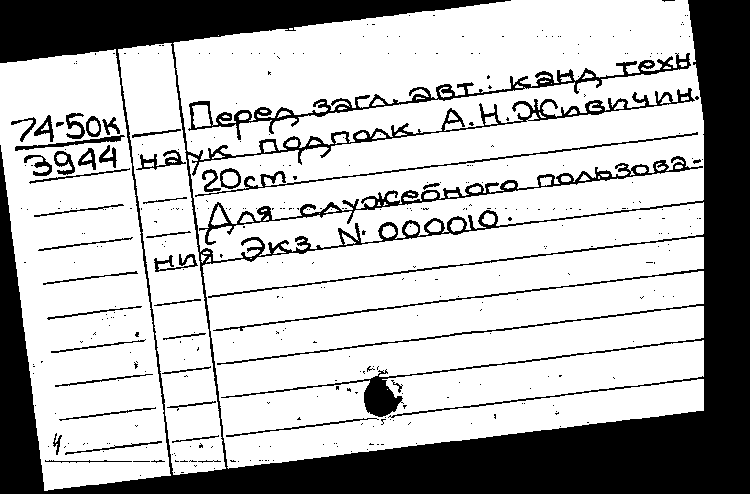 74-50к
3944
Перед загл. авт.: канд. техн.
наук подполк. А.Н.Живичин.
20 ст.
Для служебного пользова-
ния. Экз. N 000010.
4